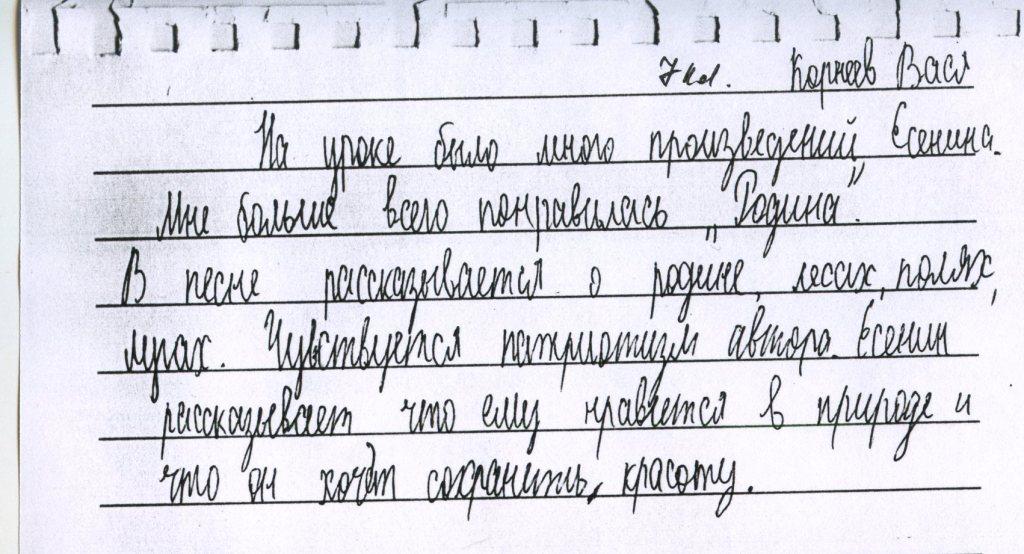 7 кл. Корнеев Вася
На уроке было много произведений Есенина.
Мне больше всего понравилась „Родина".
В песне рассказывается о родине, лесах, полях,
лугах. Чувствуется патриотизм автора. Есенин
рассказывает что ему нравится в природе и
что он хочет сохранить красоту.